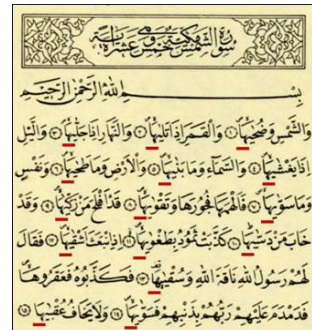 سورة الشمس مكية وهي خمس عشرة آية
بِسْمِ اللّٰهِ الرَّحْمٰنِ الرَّحِيمِ
وَالشَّمْسِ وَضُحٰيهَا ۝١ وَالْقَمَرِ اِذَا تَلٰيهَا ۝٢ وَالنَّهَارِ اِذَا جَلّٰيهَا ۝٣ وَالَّيْلِ
اِذَا يَغْشٰيهَا ۝٤ وَالسَّمَٓاءِ وَمَا بَنٰيهَا ۝٥ وَالْاَرْضِ وَمَا طَحٰيهَا ۝٦ وَنَفْسٍ
وَمَا سَوّٰيهَا ۝٧ فَاَلْهَمَهَا فُجُورَهَا وَتَقْوٰيهَا ۝٨ قَدْ اَفْلَحَ مَنْ زَكّٰيهَا ۝٩ وَقَدْ
خَابَ مَنْ دَسّٰيهَا ۝١٠ كَذَّبَتْ ثَمُودُ بِطَغْوٰيهَا ۝١١ اِذِ انْبَعَثَ اَشْقٰيهَا ۝١٢ فَقَالَ
لَهُمْ رَسُولُ اللّٰهِ نَاقَةَ اللّٰهِ وَسُقْيٰيهَا ۝١٣ فَكَذَّبُوهُ فَعَقَرُوهَا
فَدَمْدَمَ عَلَيْهِمْ رَبُّهُمْ بِذَنْبِهِمْ فَسَوّٰيهَا ۝١٤ وَلَا يَخَافُ عُقْبٰيهَا ۝١٥